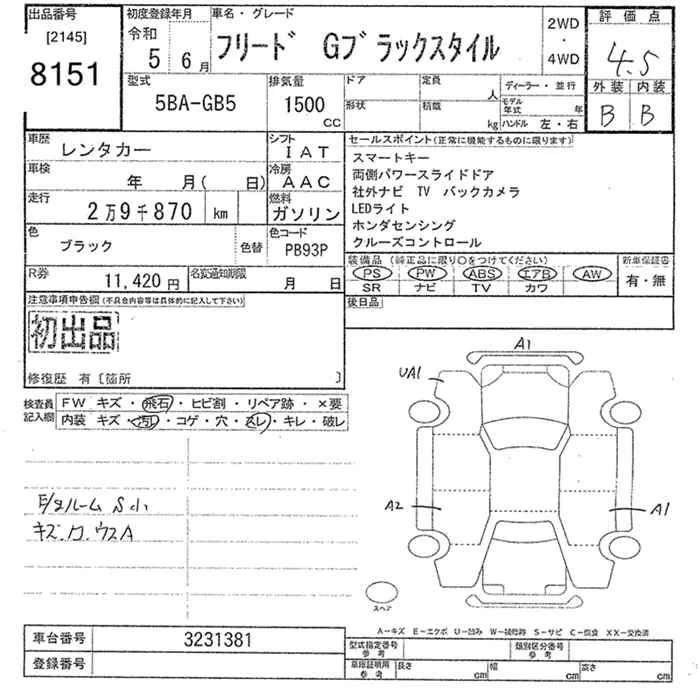 出品番号
[2145]
8151
初度登録年月
令和 5 年 6 月
車名・グレード
フリード Gブラックスタイル
2WD
・
4WD
評価点
4.5
外装 内装
B B
型式
5BA-GB5
排気量
1500
CC
ドア
定員
人
形状
積載
kg
ディーラー・並行
モデル年式 年
ハンドル 左・右
車歴
レンタカー
シフト
IAT
車検
年 月( 日)
冷房
AAC
走行
2万9千870 km
燃料
ガソリン
色
ブラック
色替
色コード
PB93P
R券
11,420円
名変通知期限
月 日
セールスポイント(正常に機能するものに限ります)
スマートキー
両側パワースライドドア
社外ナビ TV バックカメラ
LEDライト
ホンダセンシング
クルーズコントロール
装備品(純正品に限り○をつけてください)
PS PW ABS エアB AW
SR ナビ TV カワ
新車保証書
有・無
後日品
注意事項申告欄(不具合内容等は具体的に記入して下さい)
初出品
修復歴 有〔箇所 〕
検査員記入欄
FW キズ・飛石・ヒビ割・リペア跡・×要
内装 キズ・汚・コゲ・穴・スレ・キレ・破レ
キズ.
A1
UA1
A2
A1
スペア
A―キズ E―エクボ U―凹み W―補修跡 S―サビ C―腐食 XX―交換済
車台番号
3231381
登録番号
型式指定番号
参考
類別区分番号
参考
車庫証明用
参考
長さ cm
幅 cm
高さ cm